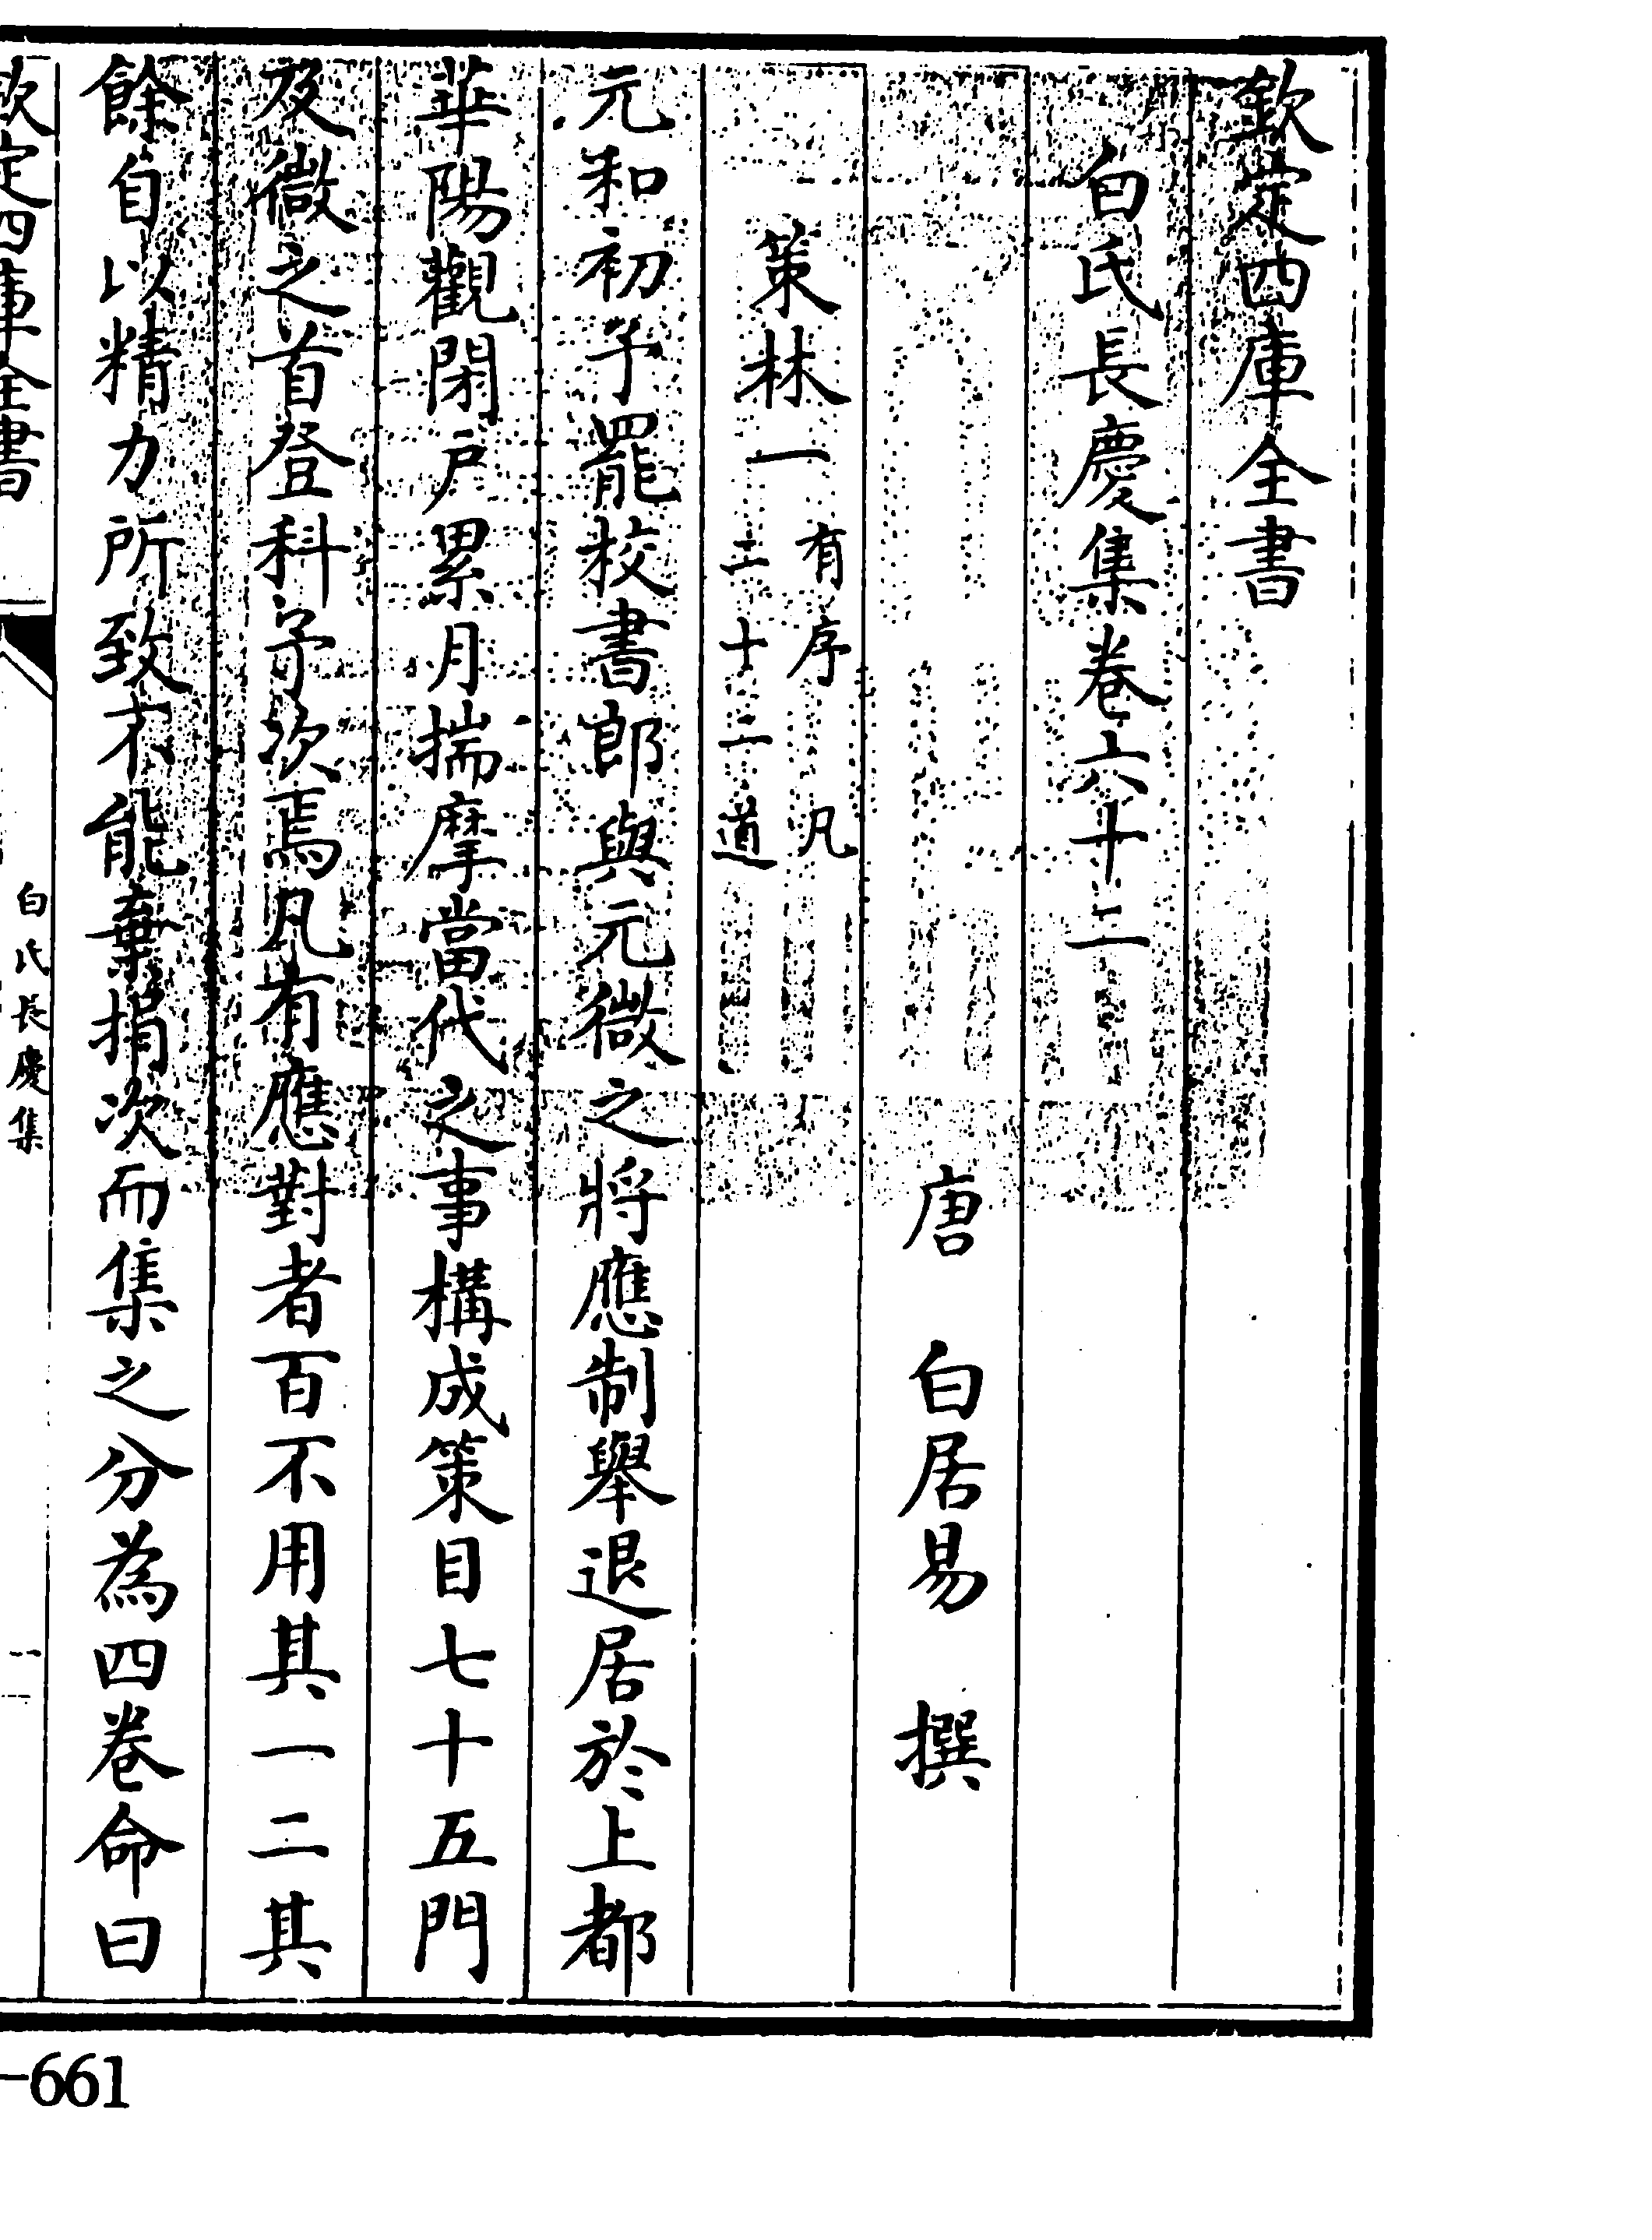 欽定四庫全書
白氏長慶集卷六十二
唐 白居易 撰
策林一 有序 凡二十二道
元和初予罷校書郎與元微之將應制舉退居於上都
華陽觀閉户累月揣摩當代之事構成策目七十五門
及微之首登科予次焉凡有應對者百不用其一二其
餘自以精力所致不能棄捐次而集之分為四卷命曰
欽定四庫全書
白氏長慶集
-661